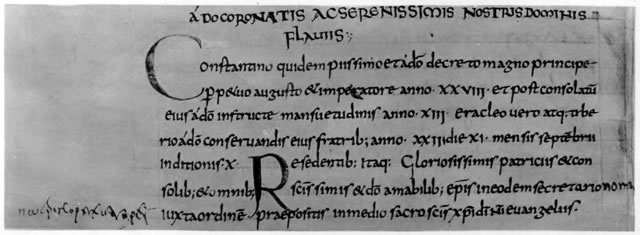 A DŌ CORONATIS AC SERENISSIMIS NOSTRIS DOMINIS
FLAUIIS:
Constantino quidem piissimo et a dō decreto magno principe
ppetuo augusto & imperatore anno · XXVIII · et post consolatū
eius a dō instructe mansuetudinis anno · XIII · eracleo vero atq; tibe
rio a dō conservandis eius fratrib; anno · XXII die XI · mensis septēbrii
inditionis · X · Resedentib; itaq; Gloriosissimis patricius & con
solib; & omnib; scīssimis & dō amabilib; epīs in eodem secretario nona
iuxta ordinē praepositis in medio sacroscīs xpī dī nrī evangeliis.